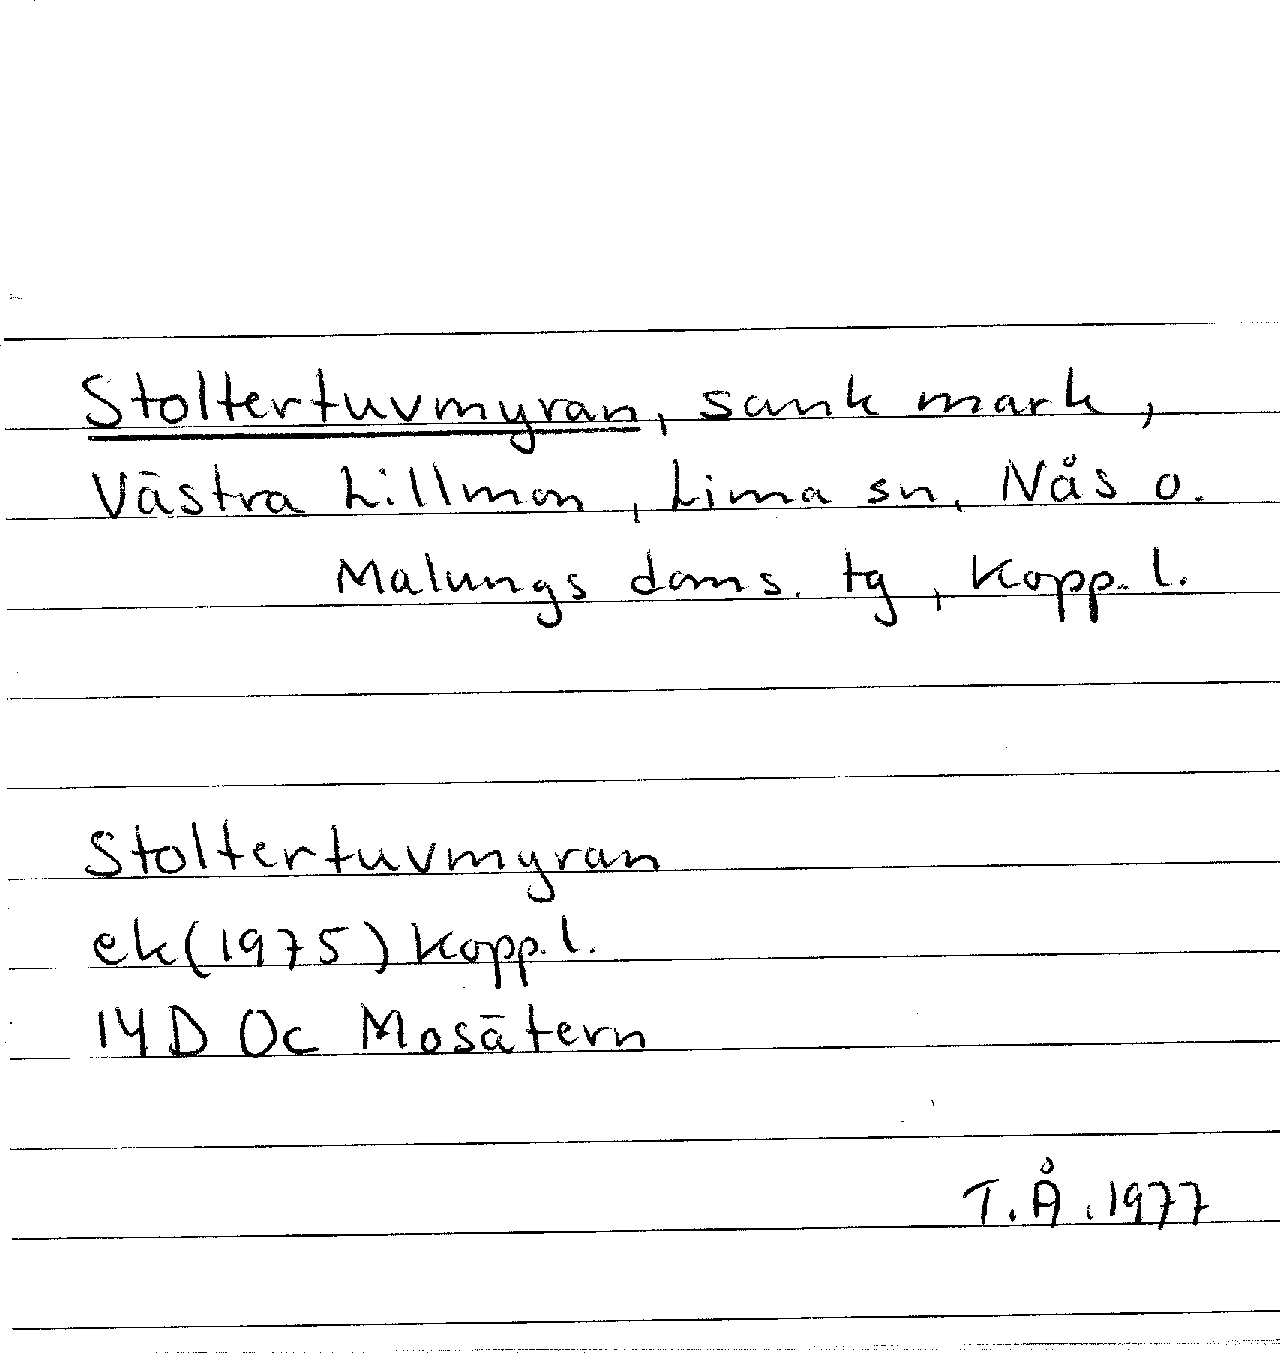 Stoltertuvmyran, sank mark,
Västra Lillmon, Lima sn, Nås o.
Malungs doms. tg, Kopp. l.
Stoltertuvmyran
ek(1975) Kopp. l.
14D 0c Mosätern
T.Å. 1977